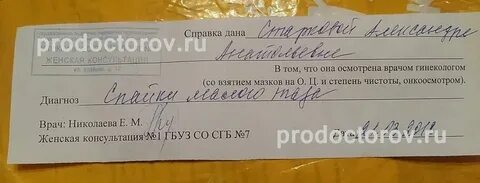 prodoctorov.ru
Справка дана Старковой Александре
ЖЕНСКАЯ КОНСУЛЬТАЦИЯ
Анатольевне
В том, что она осмотрена врачом гинекологом
(со взятием мазков на О. Ц. и степень чистоты, онкосмотр).
Диагноз Спайки малого таза
Врач: Николаева Е. М.
prodoctorov.ru
Женская консультация №1 ГБУЗ СО СГБ №7